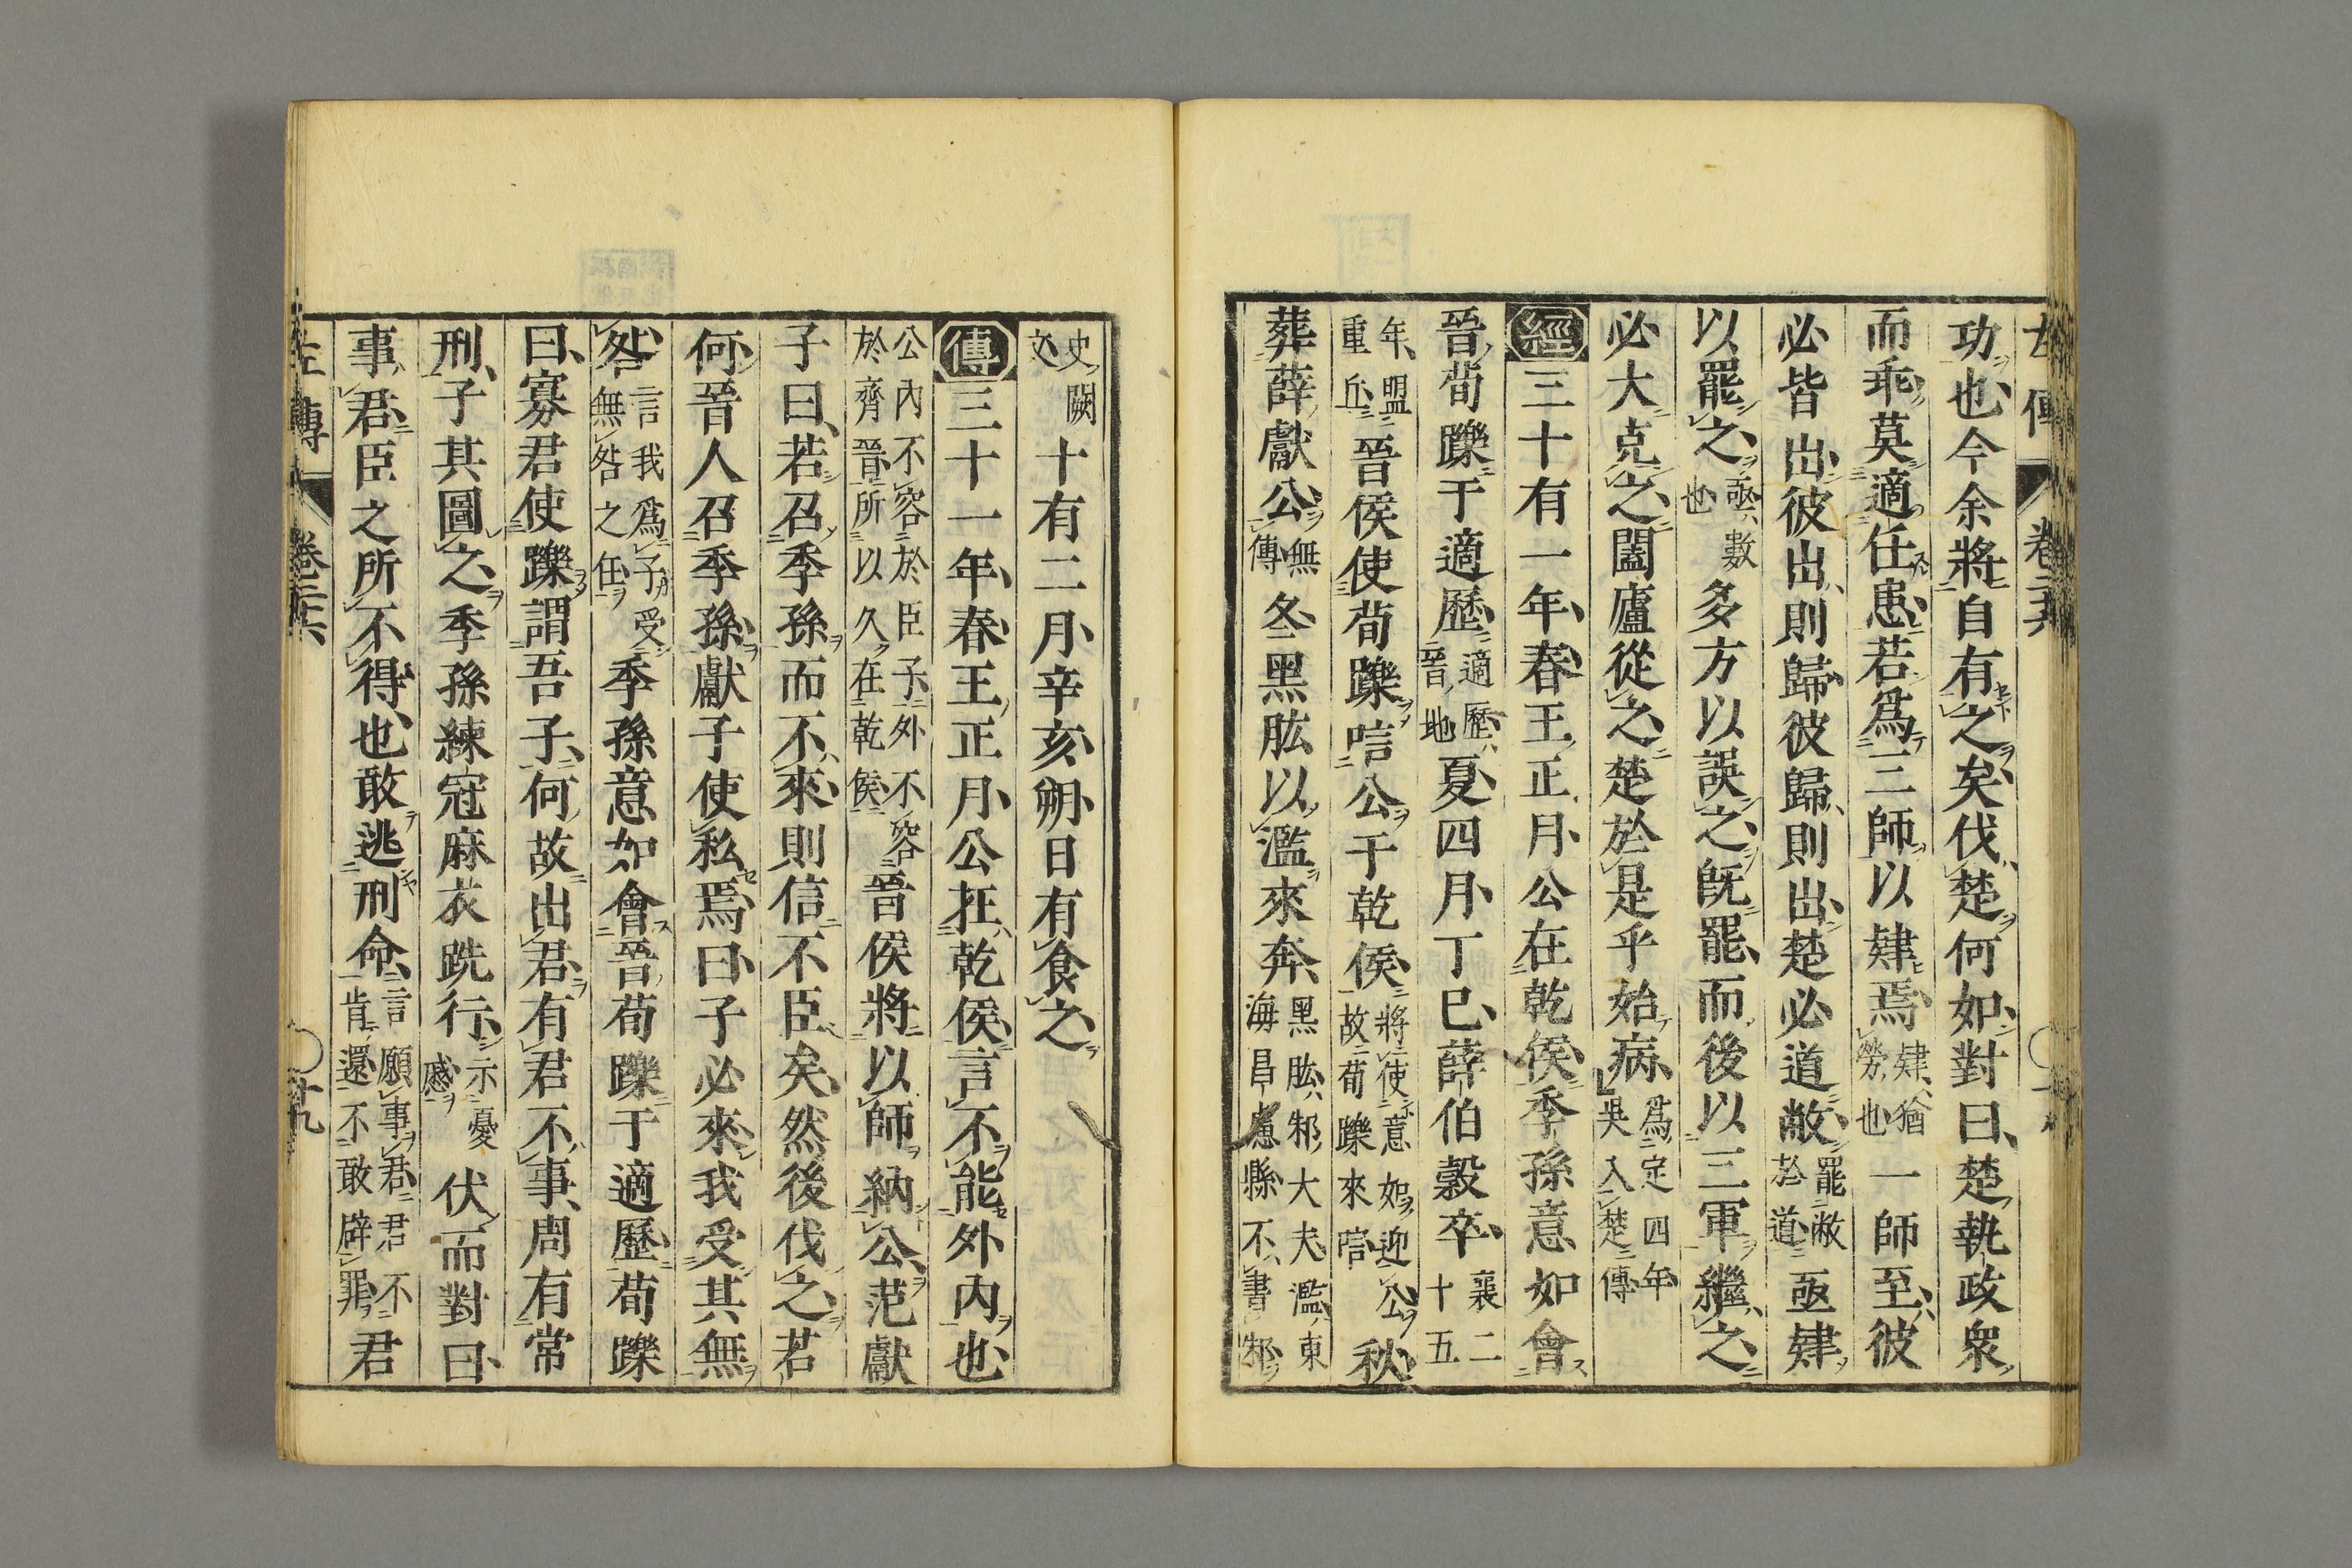 功也今余將自有之矣伐楚何如對曰楚執政衆
而乖莫適任患若爲三師以肄焉肄猶勞也一師至彼
必皆出彼出則歸彼歸則出楚必道敝罷敝於道亟肄
以罷之亟數也多方以誤之既罷而後以三軍繼之
必大克之闔廬從之楚於是乎始病爲定四年吳入楚傳
經三十有一年春王正月公在乾侯季孫意如會
晉荀躒于適歷適歷晉地夏四月丁巳薛伯穀卒襄二十五
年盟重丘晉侯使荀躒唁公于乾侯將使意如迎公故荀躒來唁秋
葬薛獻公無傳冬黑肱以濫來奔黑肱邾大夫濫東海昌慮縣不書邾
史闕文十有二月辛亥朔日有食之
傳三十一年春王正月公在乾侯言不能外內也
公內不容於臣子外不容於齊晉所以久在乾侯晉侯將以師納公范獻
子曰若召季孫而不來則信不臣矣然後伐之若
何晉人召季孫獻子使私焉曰子必來我受其無
咎言我爲子受無咎之任季孫意如會晉荀躒于適歷荀躒
曰寡君使躒謂吾子何故出君有君不事周有常
刑子其圖之季孫練冠麻衣跣行示憂慼伏而對曰
事君臣之所不得也敢逃刑命言願事君君不肯還不敢辟罪君
左傳 卷二十六 十九